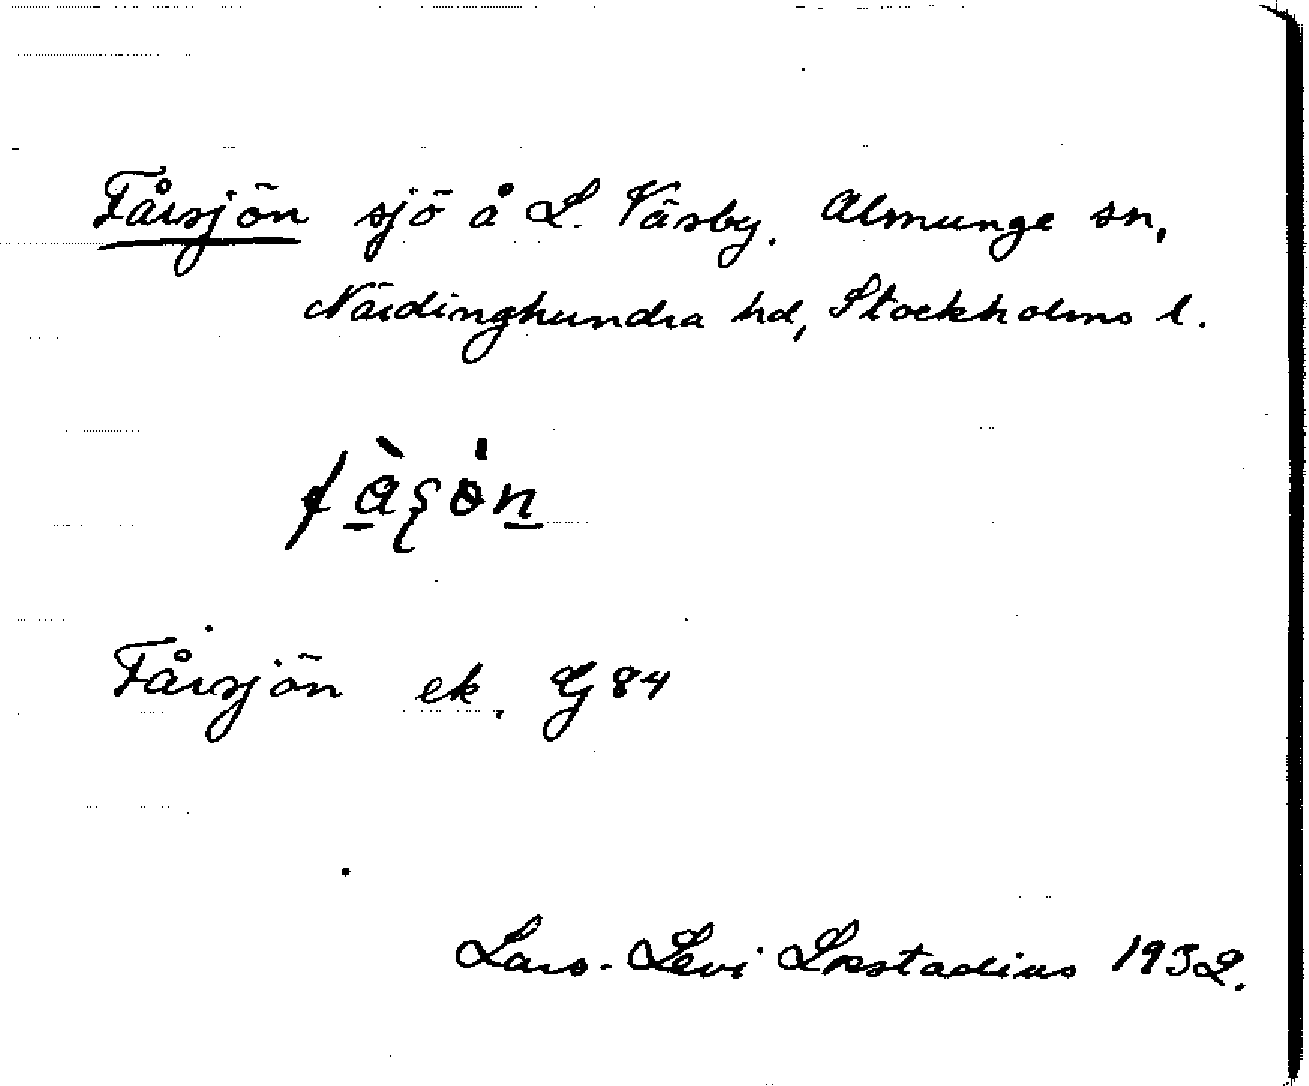 Fårsjön sjö å L. Väsby. Almunge sn,
Närdinghundra hd, Stockholms l.
Fårsjön ek. G 84
Lars-Levi Læstadius 1932.